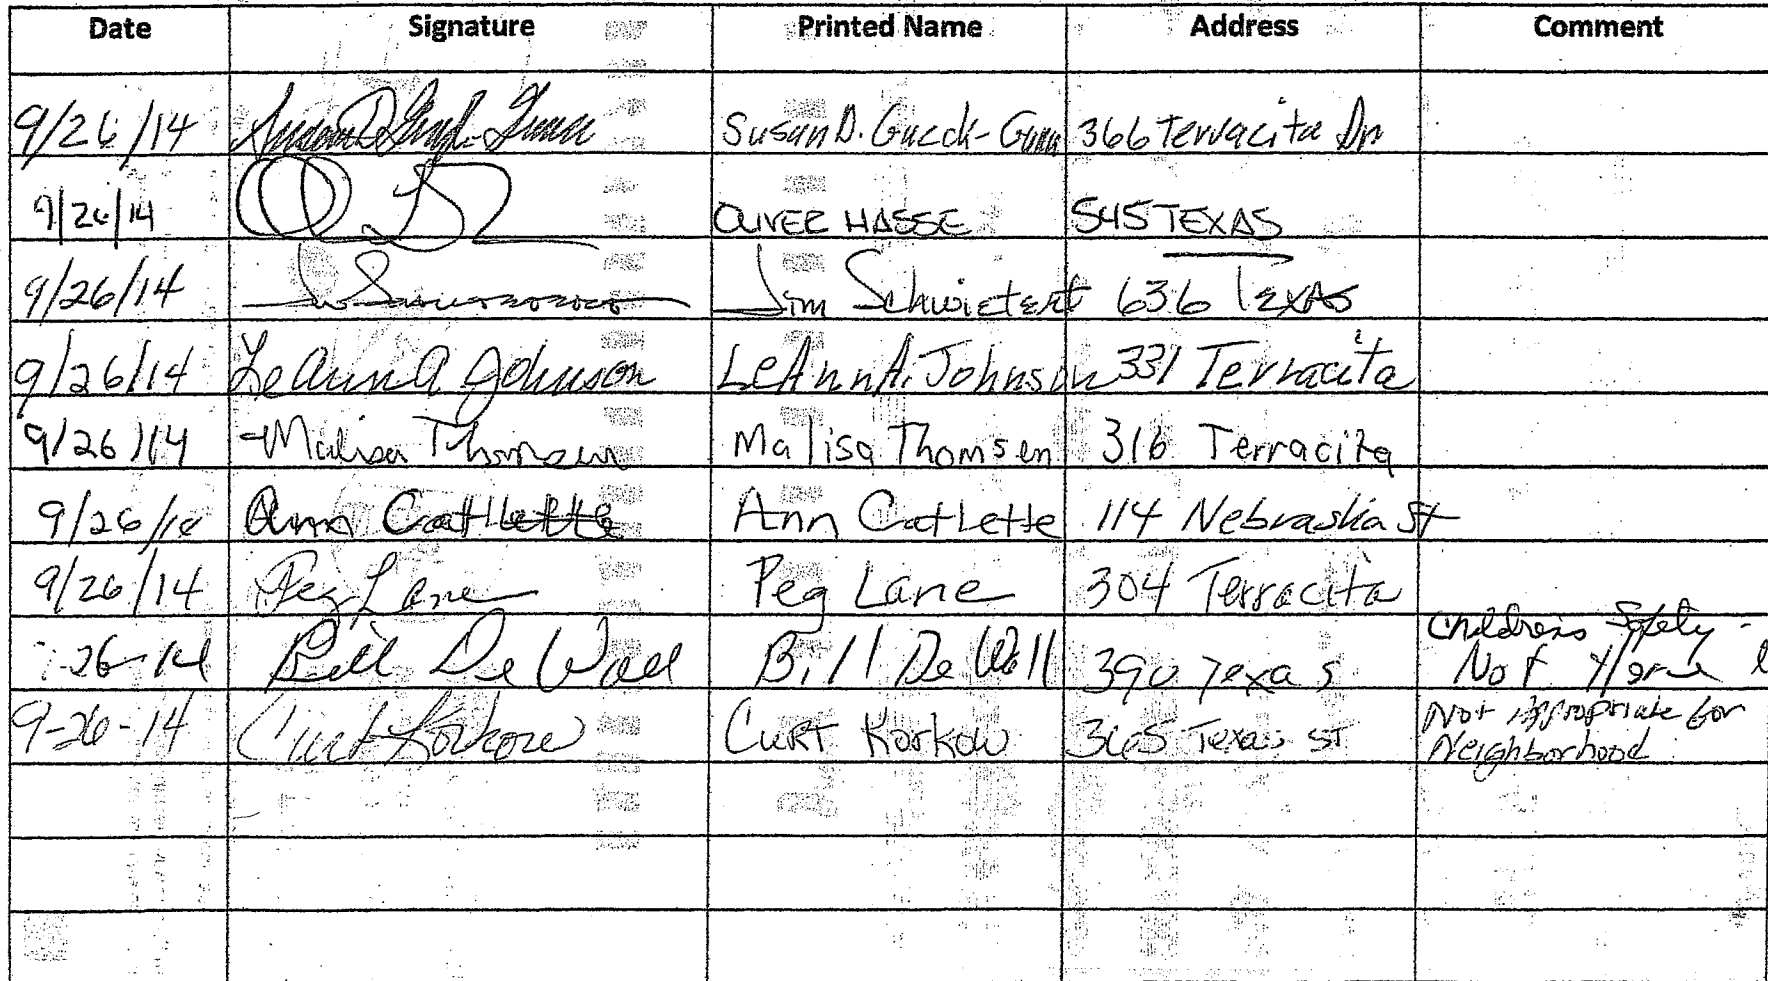 Date Signature Printed Name Address Comment
9/26/14 Susan D. 366 Terracita Dr
9/26/14 OLIVER HASSE 545 TEXAS
9/26/14 Jim Schwietert 636 TEXAS
9/26/14 LeAnn A Johnson LeAnn A. Johnson 331 Terracita
9/26/14 Malisa Thomsen Malisa Thomsen 316 Terracita
9/26/14 Ann Catlette Ann Catlette 114 Nebraska St
9/26/14 Peg Lane Peg Lane 304 Terracita
Childrens Safety -
26-14 Bill De Wall Bill De Wall 390 Texas Not
9-26-14 Curt Korkow CURT Korkow 365 Texas ST Not Appropriate for
Neighborhood